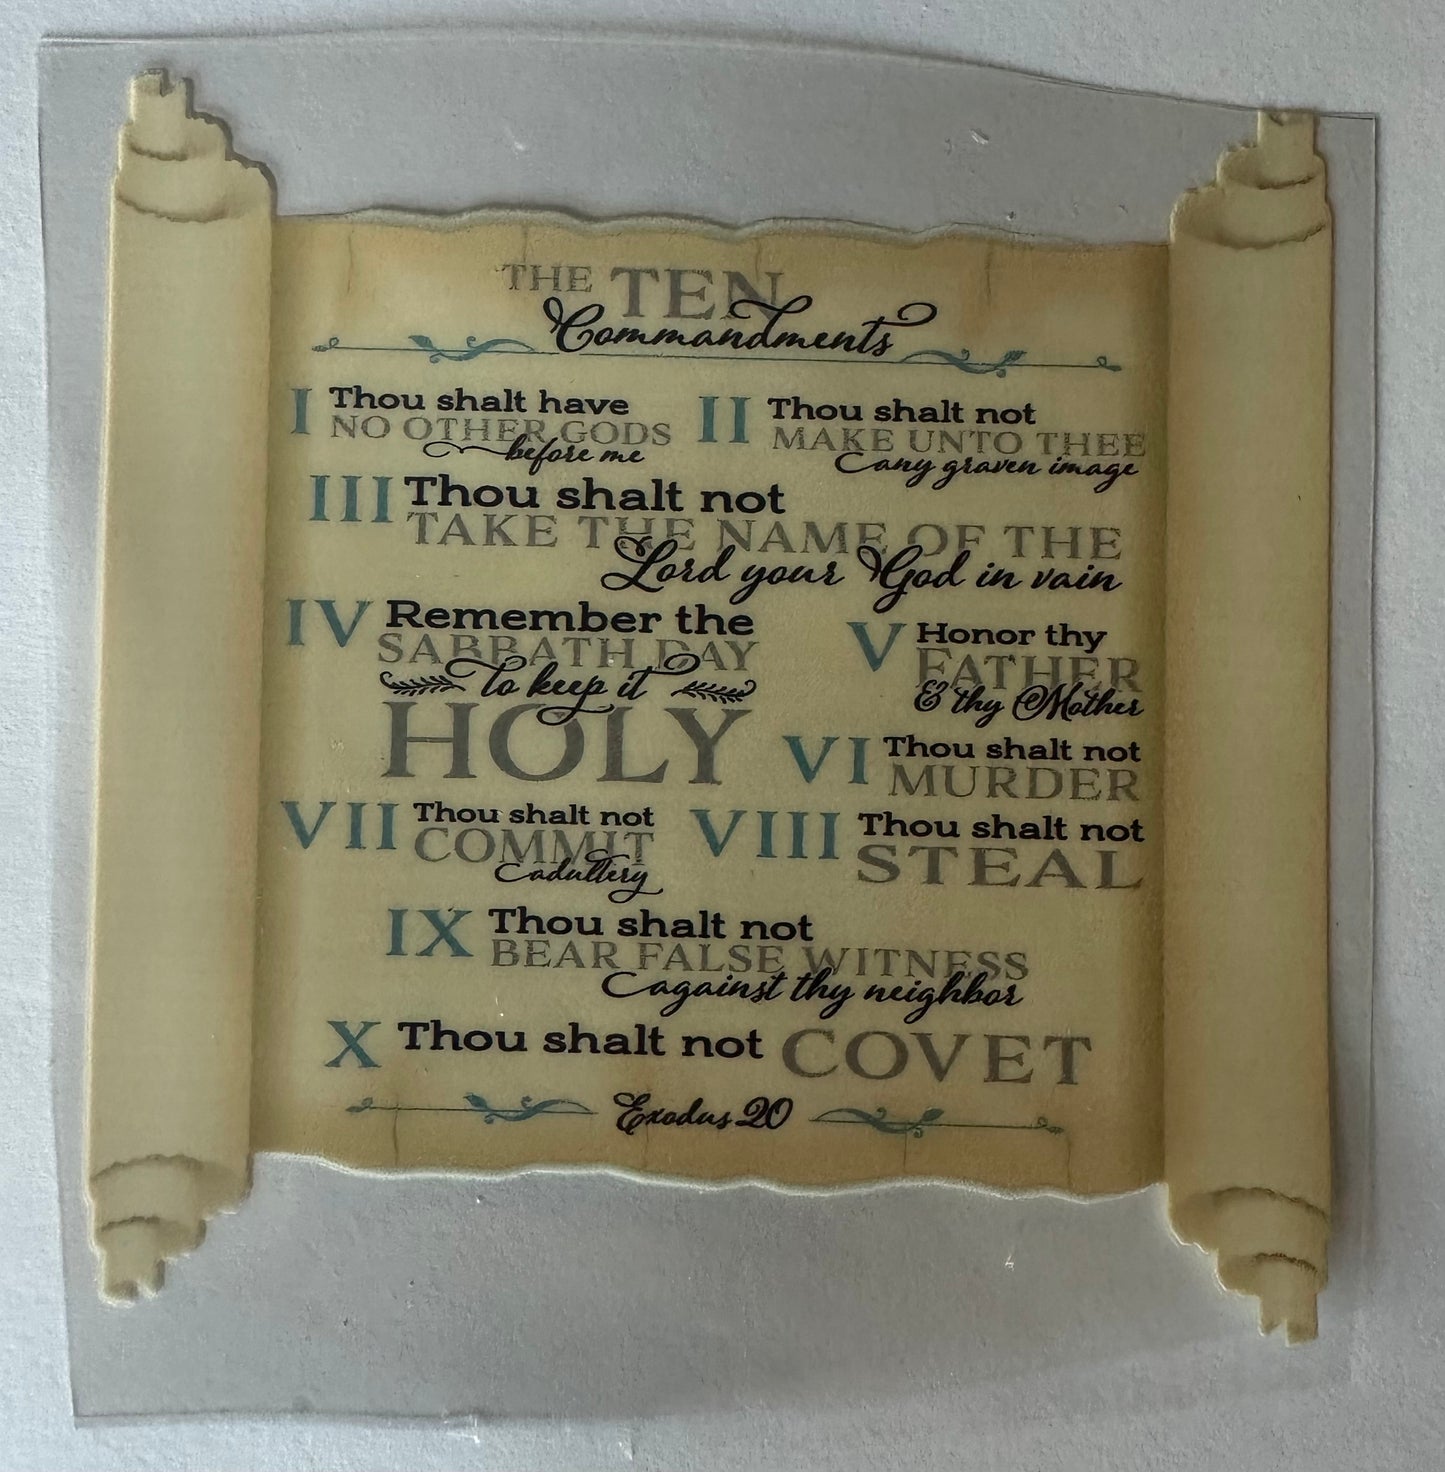 THE TEN
Commandments
I Thou shalt have
NO OTHER GODS
before me
II Thou shalt not
MAKE UNTO THEE
any graven image
III Thou shalt not
TAKE THE NAME OF THE
Lord your God in vain
IV Remember the
SABBATH DAY
to keep it
HOLY
V Honor thy
FATHER
& thy Mother
VI Thou shalt not
MURDER
VII Thou shalt not
COMMIT
adultery
VIII Thou shalt not
STEAL
IX Thou shalt not
BEAR FALSE WITNESS
against thy neighbor
X Thou shalt not COVET
Exodus 20